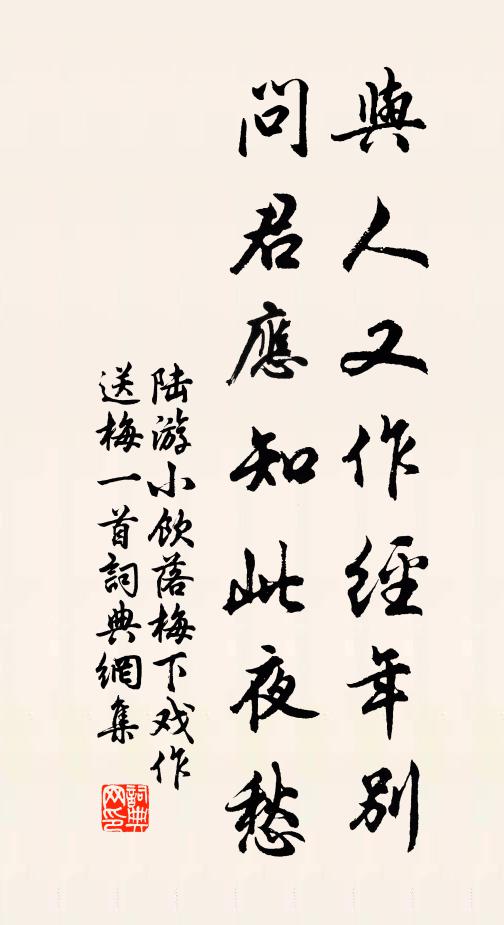 與人又作經年别
問君應知此夜愁
陆游小饮落梅下戏作
送梅一首詞典網集
詞典
网